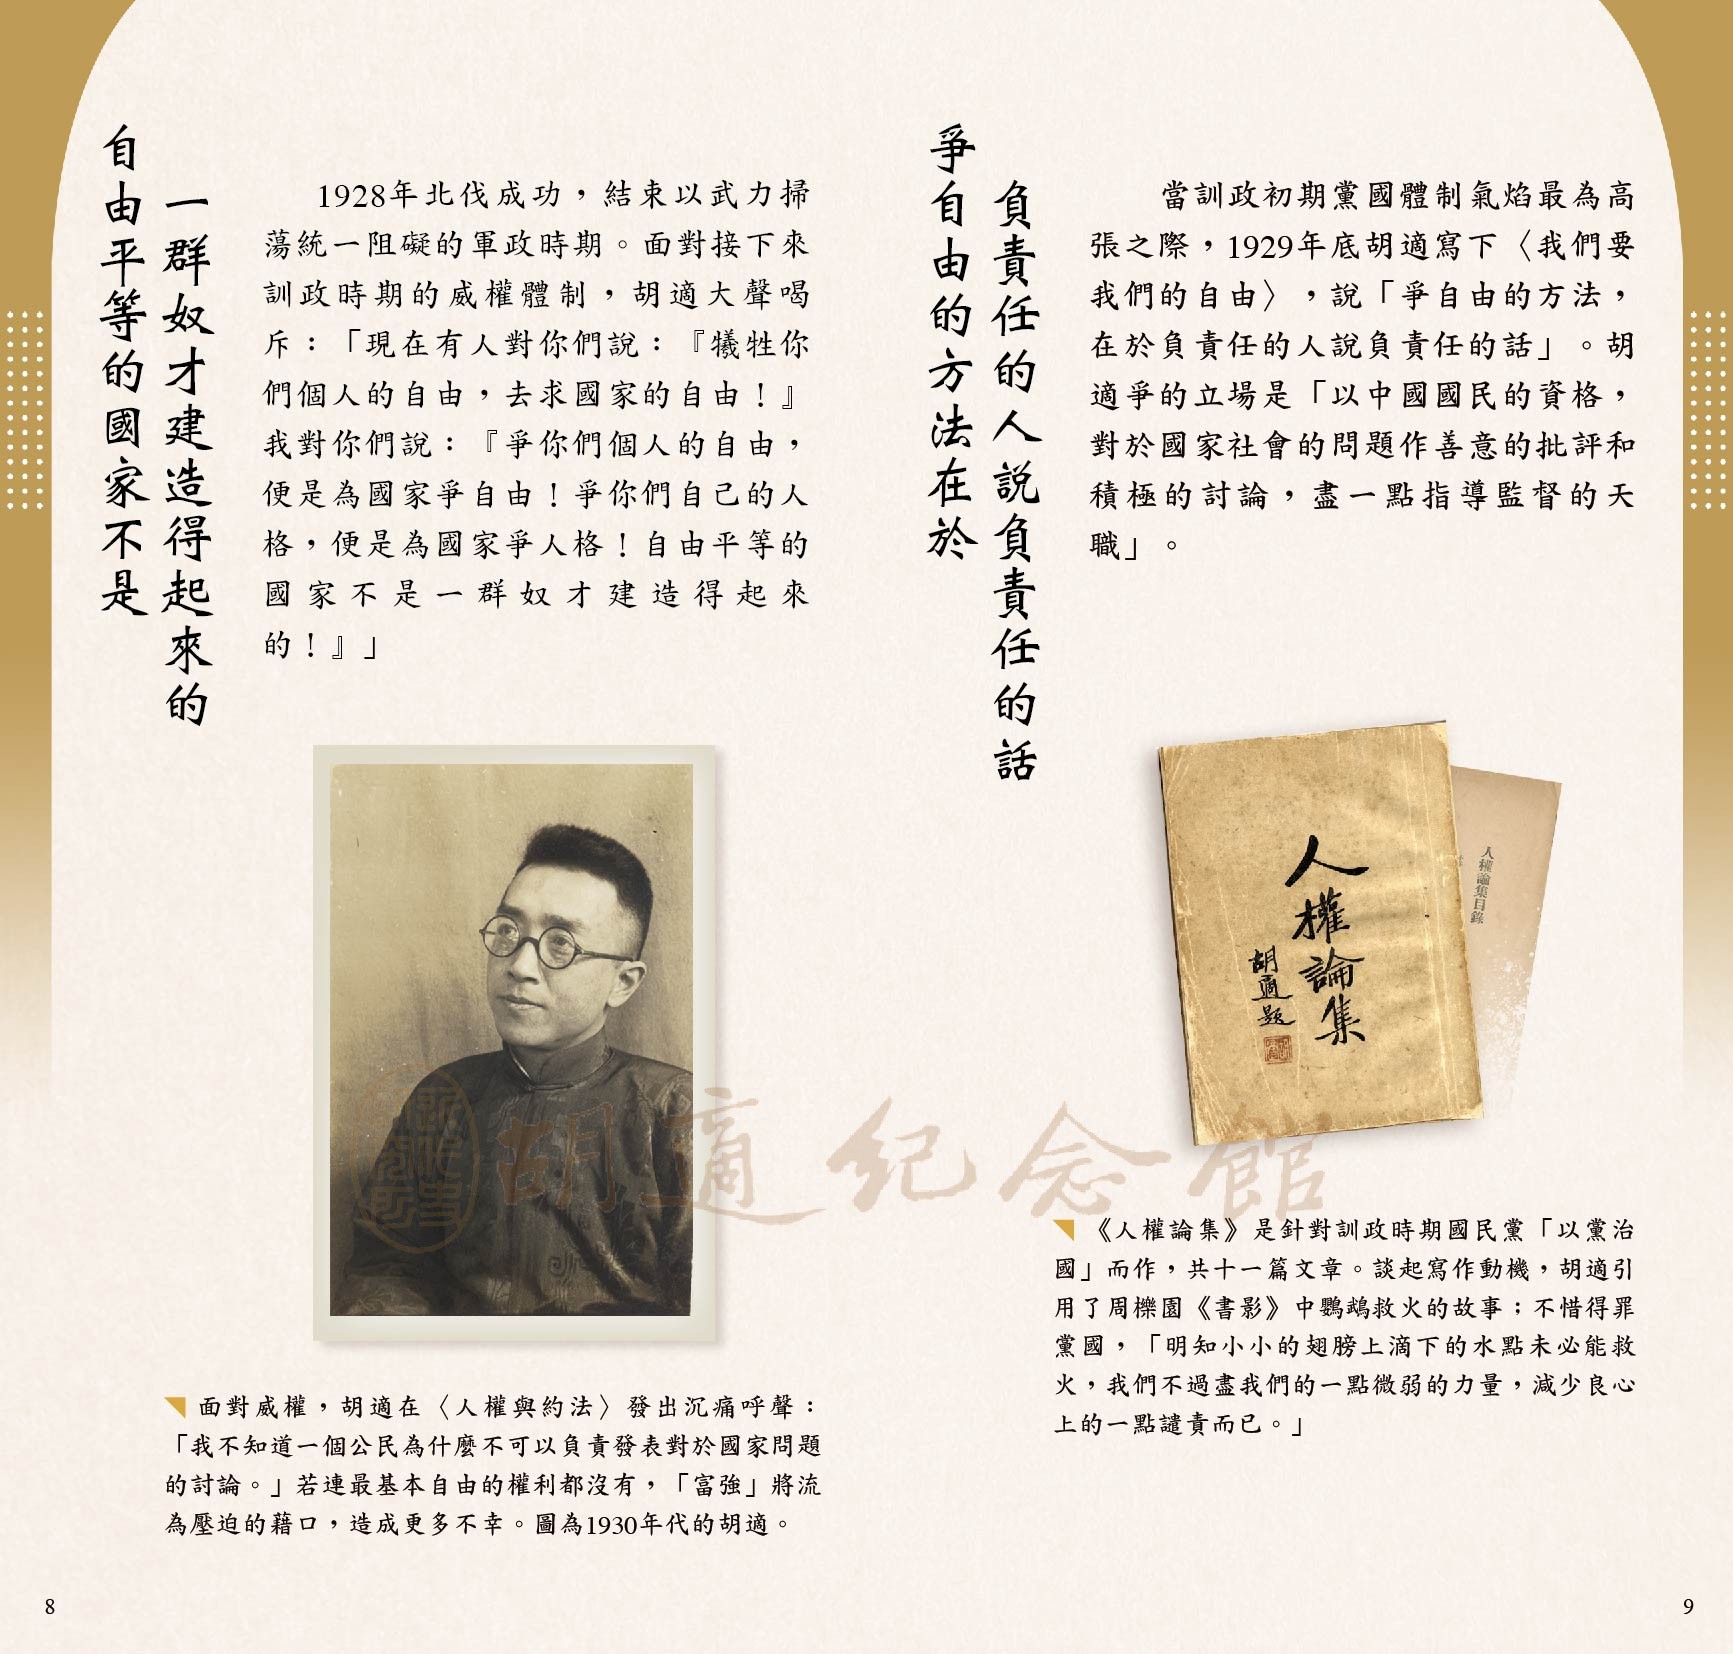 自由平等的國家不是
一群奴才建造得起來的
1928年北伐成功，結束以武力掃
蕩統一阻礙的軍政時期。面對接下來
訓政時期的威權體制，胡適大聲喝
斥：「現在有人對你們說：『犧牲你
們個人的自由，去求國家的自由！』
我對你們說：『爭你們個人的自由，
便是為國家爭自由！爭你們自己的人
格，便是為國家爭人格！自由平等的
國家不是一群奴才建造得起來
的！』」
面對威權，胡適在〈人權與約法〉發出沉痛呼聲：
「我不知道一個公民為什麼不可以負責發表對於國家問題
的討論。」若連最基本自由的權利都沒有，「富強」將流
為壓迫的藉口，造成更多不幸。圖為1930年代的胡適。
8
爭自由的方法在於
負責任的人說負責任的話
當訓政初期黨國體制氣焰最為高
張之際，1929年底胡適寫下〈我們要
我們的自由〉，說「爭自由的方法，
在於負責任的人說負責任的話」。胡
適爭的立場是「以中國國民的資格，
對於國家社會的問題作善意的批評和
積極的討論，盡一點指導監督的天
職」。
人權論集
胡適題
人權論集目錄
胡適紀念館
《人權論集》是針對訓政時期國民黨「以黨治
國」而作，共十一篇文章。談起寫作動機，胡適引
用了周櫟園《書影》中鸚鵡救火的故事；不惜得罪
黨國，「明知小小的翅膀上滴下的水點未必能救
火，我們不過盡我們的一點微弱的力量，減少良心
上的一點譴責而已。」
9